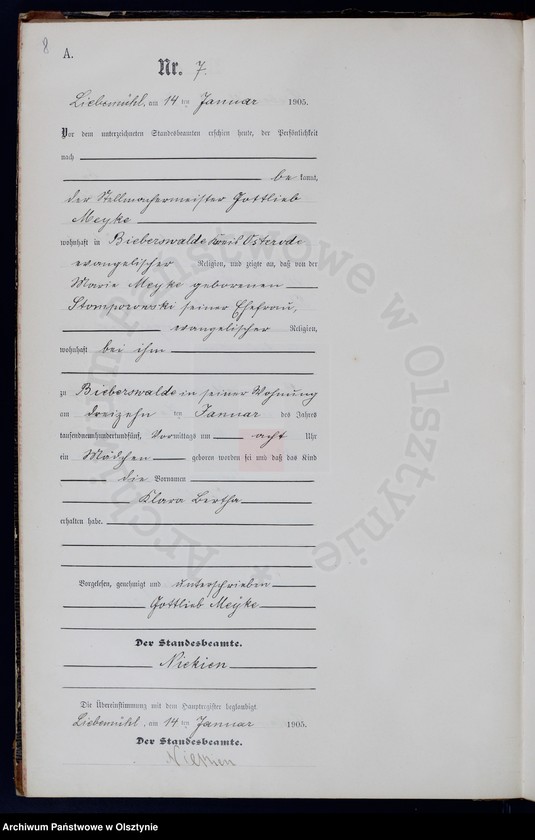 8
A.
Nr. 7.
Liebemühl, am 14 ten Januar 1905.
Vor dem unterzeichneten Standesbeamten erschien heute, der Persönlichkeit
nach
be kannt,
der Stellmachermeister Gottlieb
Meyke
wohnhaft in Bieberswalde Kreis Osterode
evangelischer Religion, und zeigte an, daß von der
Marie Meyke geborenen
Stomporowski seiner Ehefrau,
evangelischer Religion,
wohnhaft bei ihm
zu Bieberswalde in seiner Wohnung
am dreizehn ten Januar des Jahres
tausendneunhundertundfünf, Vormittags um acht Uhr
ein Mädchen geboren worden sei und daß das Kind
die Vornamen
Klara Bertha
erhalten habe.
Vorgelesen, genehmigt und unterschrieben
Gottlieb Meyke
Der Standesbeamte.
Die Übereinstimmung mit dem Hauptregister beglaubigt.
Liebemühl, am 14 ten Januar 1905.
Der Standesbeamte.
Archiwum Państwowe w Olsztynie
Archiwum Państwowe w Olsztynie